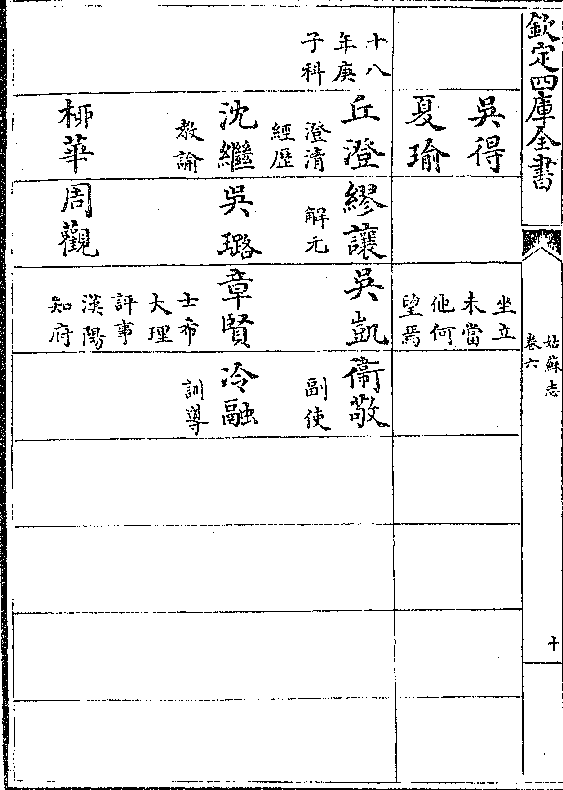 欽定四庫全書
姑蘇志
卷六
十
吳得
夏瑜
坐立
未當
他何
望焉
十八
年庚
子科
丘澄
澄清
經歷
沈繼
教諭
桺華
繆讓
解元
吳璐
周觀
吳凱
章賢
士希
大理
評事
漢陽
知府
衞敬
副使
冷融
訓導